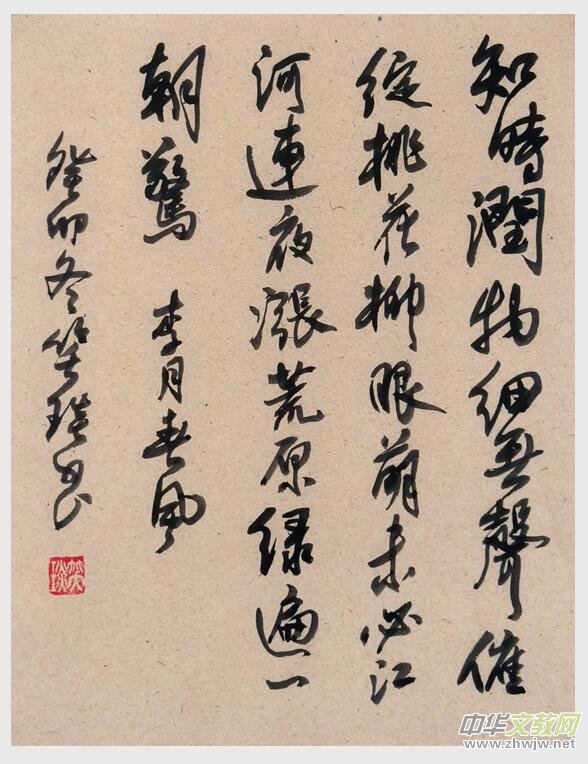 知時潤物細無聲催
綻桃花柳眼萌未必江
河連夜漲荒原绿遍一
朝驚 李月春風
癸卯冬笑
中华文教网
www.zhwjw.net